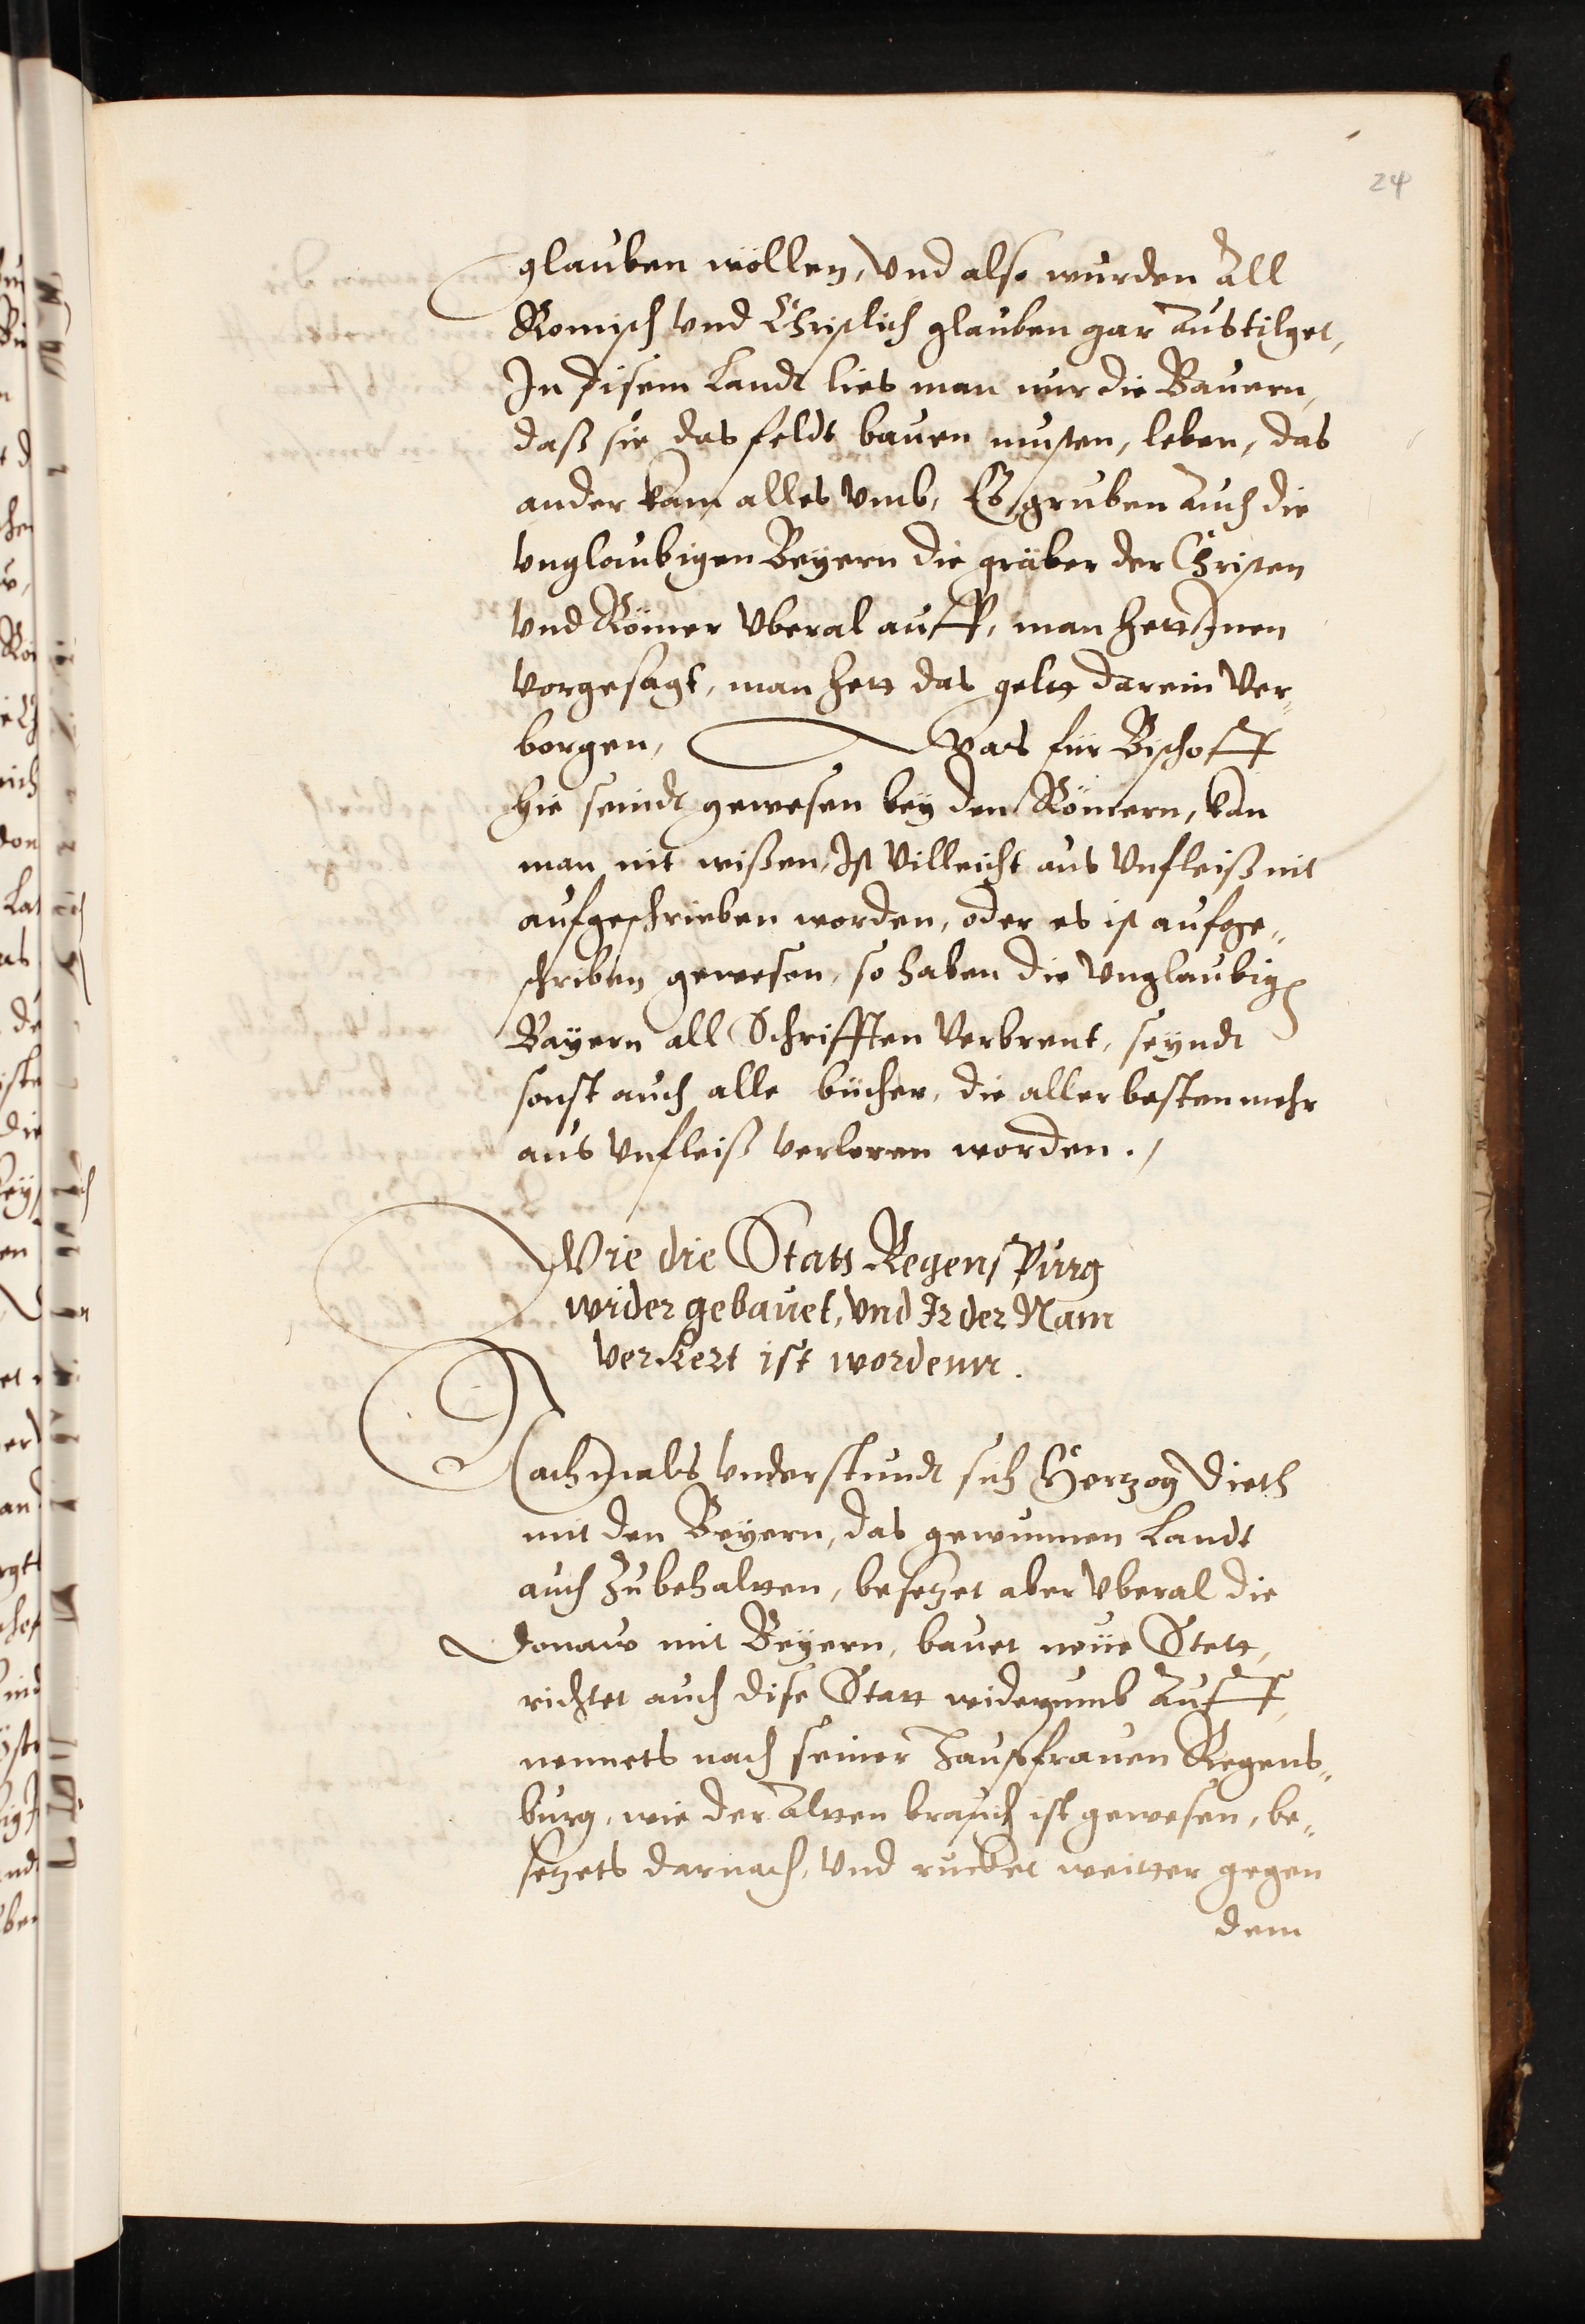 24
glauben wöllen, vnd also wurden All
Romisch vnd Christlich glauben gar Austilget,
In disem Landt lies man nur die Bauern,
daß sie das feldt bauen musten, leben, das
ander kam alles vmb, Es gruben Auch die
vnglaubigen Beyern die gräber der Christen
vnd Römer vberal auff, man hett Inen
vorgesagt, man hett das geltt darein ver„
borgen, Was für Bischoff
hie seindt gewesen bey den Römern, kan
man nit wißen, Ist villeicht aus vnfleiß nit
aufgeschrieben worden, oder es ist aufge„
schriben gewesen, so haben die vnglaubigen
Bayern all Schrifften verbrent, seyndt
sonst auch alle bücher, die aller besten mehr
aus vnfleiß verloren worden.
Wie die Statt Regenspurg
wider gebauet, vnd Ir der Nam
verkert ist wordenn.
Nachmals vnderstundt sich Hertzog Dieth
mit den Beyern, das gewunnen Landt
auch zubehaltten, besetzet aber vberal die
Donaw mit Beyern, bauet neüe Stett,
richtet auch dise Statt widerumb Auff,
nennets nach seiner Haussfrauen Regens„
burg, wie der Altten brauch ist gewesen, be„
setzets darnach, vnd rucket weitter gegen
dem